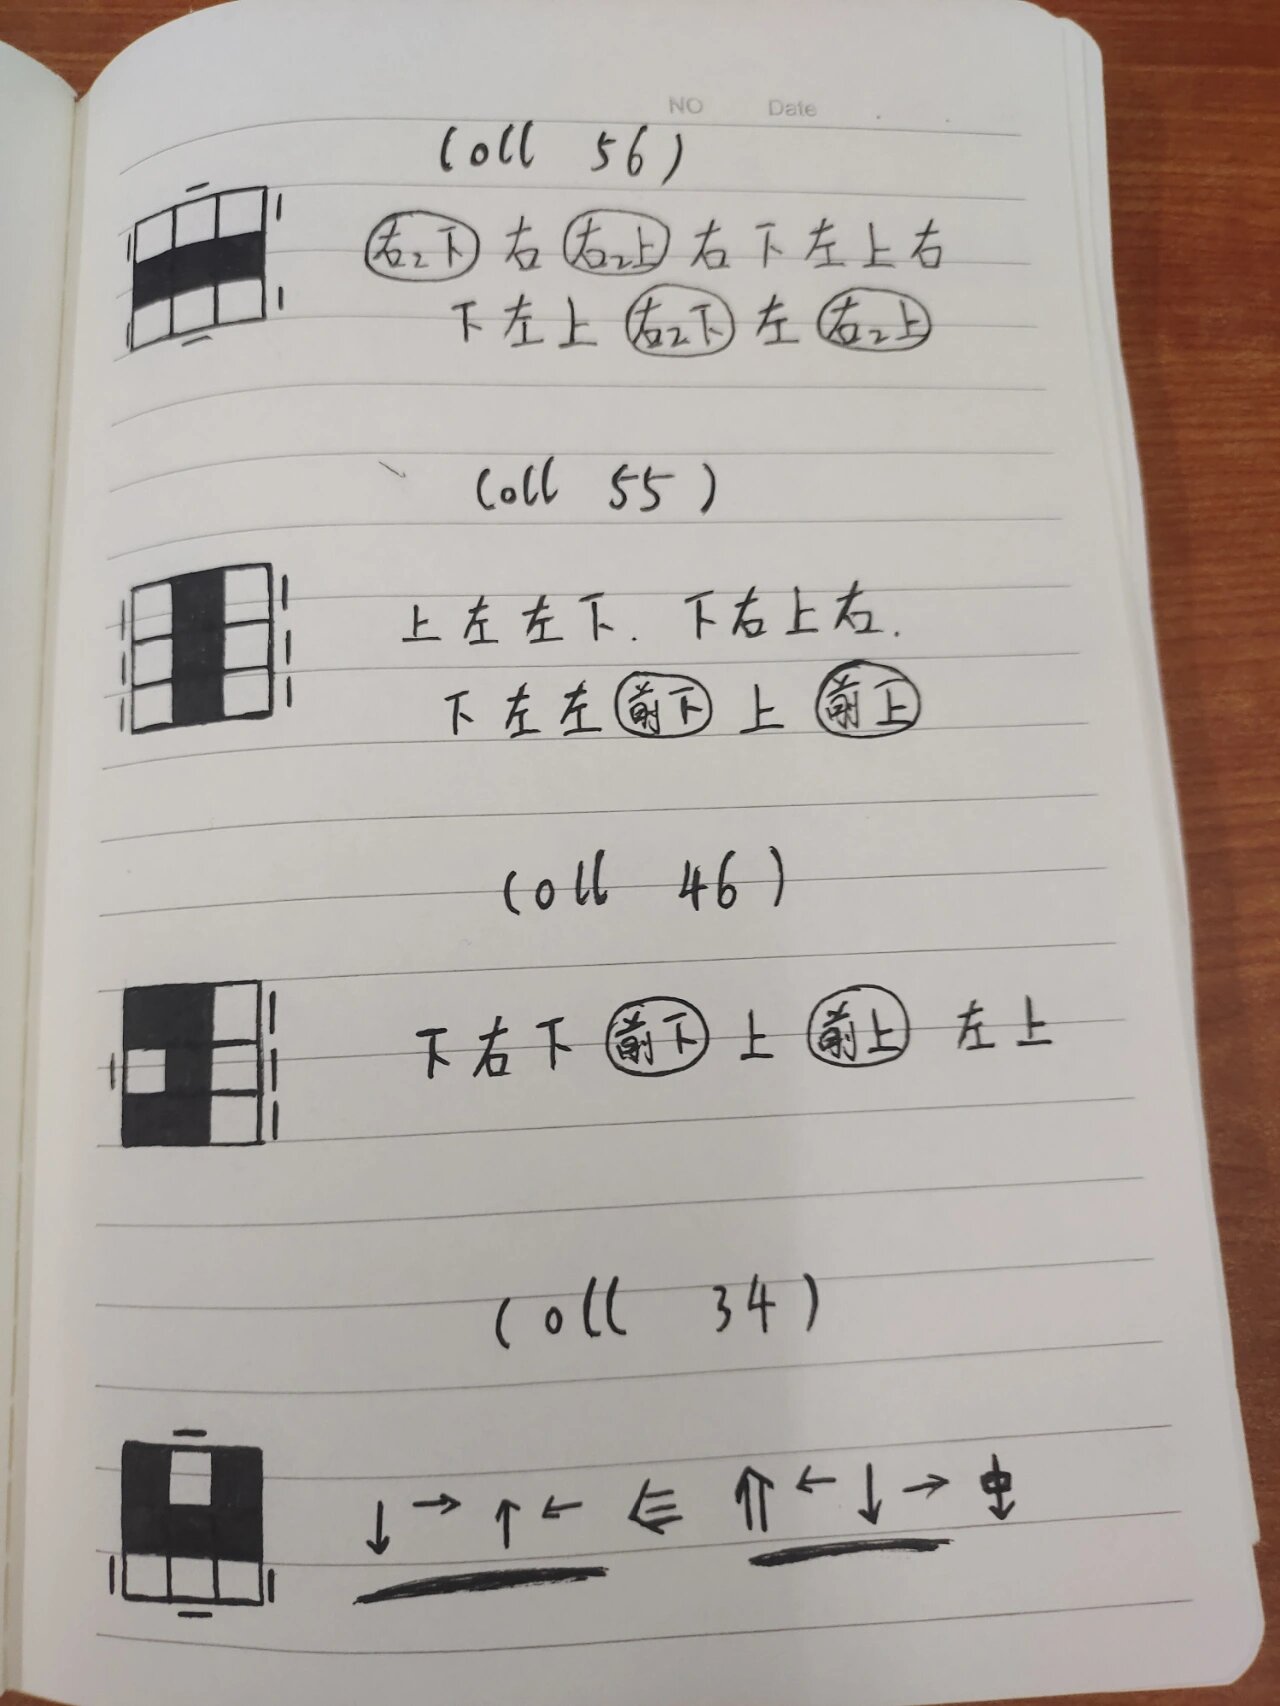 NO Date
(oll 56)
右2下 右 右2上 右下左上右
下左上 右2下 左 右2上
(oll 55)
上左左下. 下右上右.
下左左 前下 上 前上
(oll 46)
下右下 前下 上 前上 左上
(oll 34)
↓→↑← ⇚ ⇑←↓→ 中↓